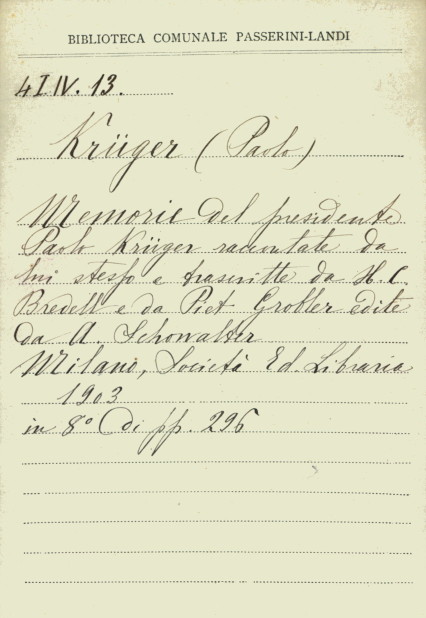 BIBLIOTECA COMUNALE PASSERINI-LANDI
4I.IV.13.
Krüger (Paolo)
Memorie del presidente
Paolo Krüger raccontate da
lui stesso e trascritte da H. C.
Bredell e da Piet Grobler edite
da A. Schowalter
Milano, Società Ed. Libraria
1903
in 8º di pp. 296